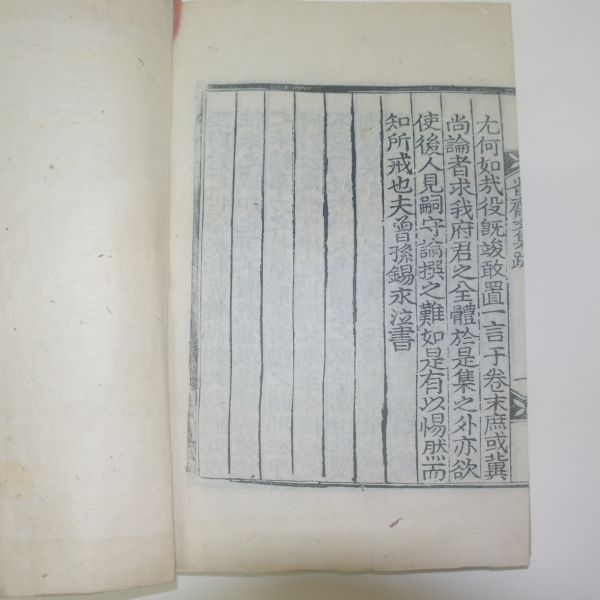 尤何如㢤役旣竣敢置一言于卷末庶或冀
尚論者求我府君之全體於是集之外亦欲
使後人見嗣守論撰之難如是有以惕然而
知所戒也夫曾孫錫永泣書